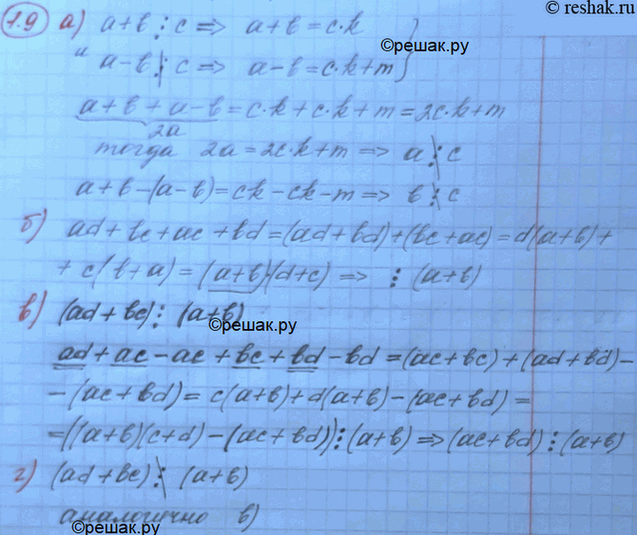 © reshak.ru
1.9 а) a+b ⋮ c => a+b=c·k
©решак.ру
и a-b ⋮̸ c => a-b=c·k+m }
a+b+a-b=c·k+c·k+m=2c·k+m
2a
тогда 2a=2c·k+m => a ⋮̸ c
a+b-(a-b)=ck-ck-m => b ⋮̸ c
б) ad+bc+ac+bd=(ad+bd)+(bc+ac)=d(a+b)+
+c(b+a)=(a+b)(d+c) => ⋮ (a+b)
в) (ad+bc) ⋮ (a+b)
©решак.ру
ad+ac-ac+bc+bd-bd=(ac+bc)+(ad+bd)-
-(ac+bd)=c(a+b)+d(a+b)-(ac+bd)=
=((a+b)(c+d)-(ac+bd)) ⋮ (a+b) => (ac+bd) ⋮ (a+b)
г) (ad+bc) ⋮̸ (a+b)
аналогично в)
©решак.ру